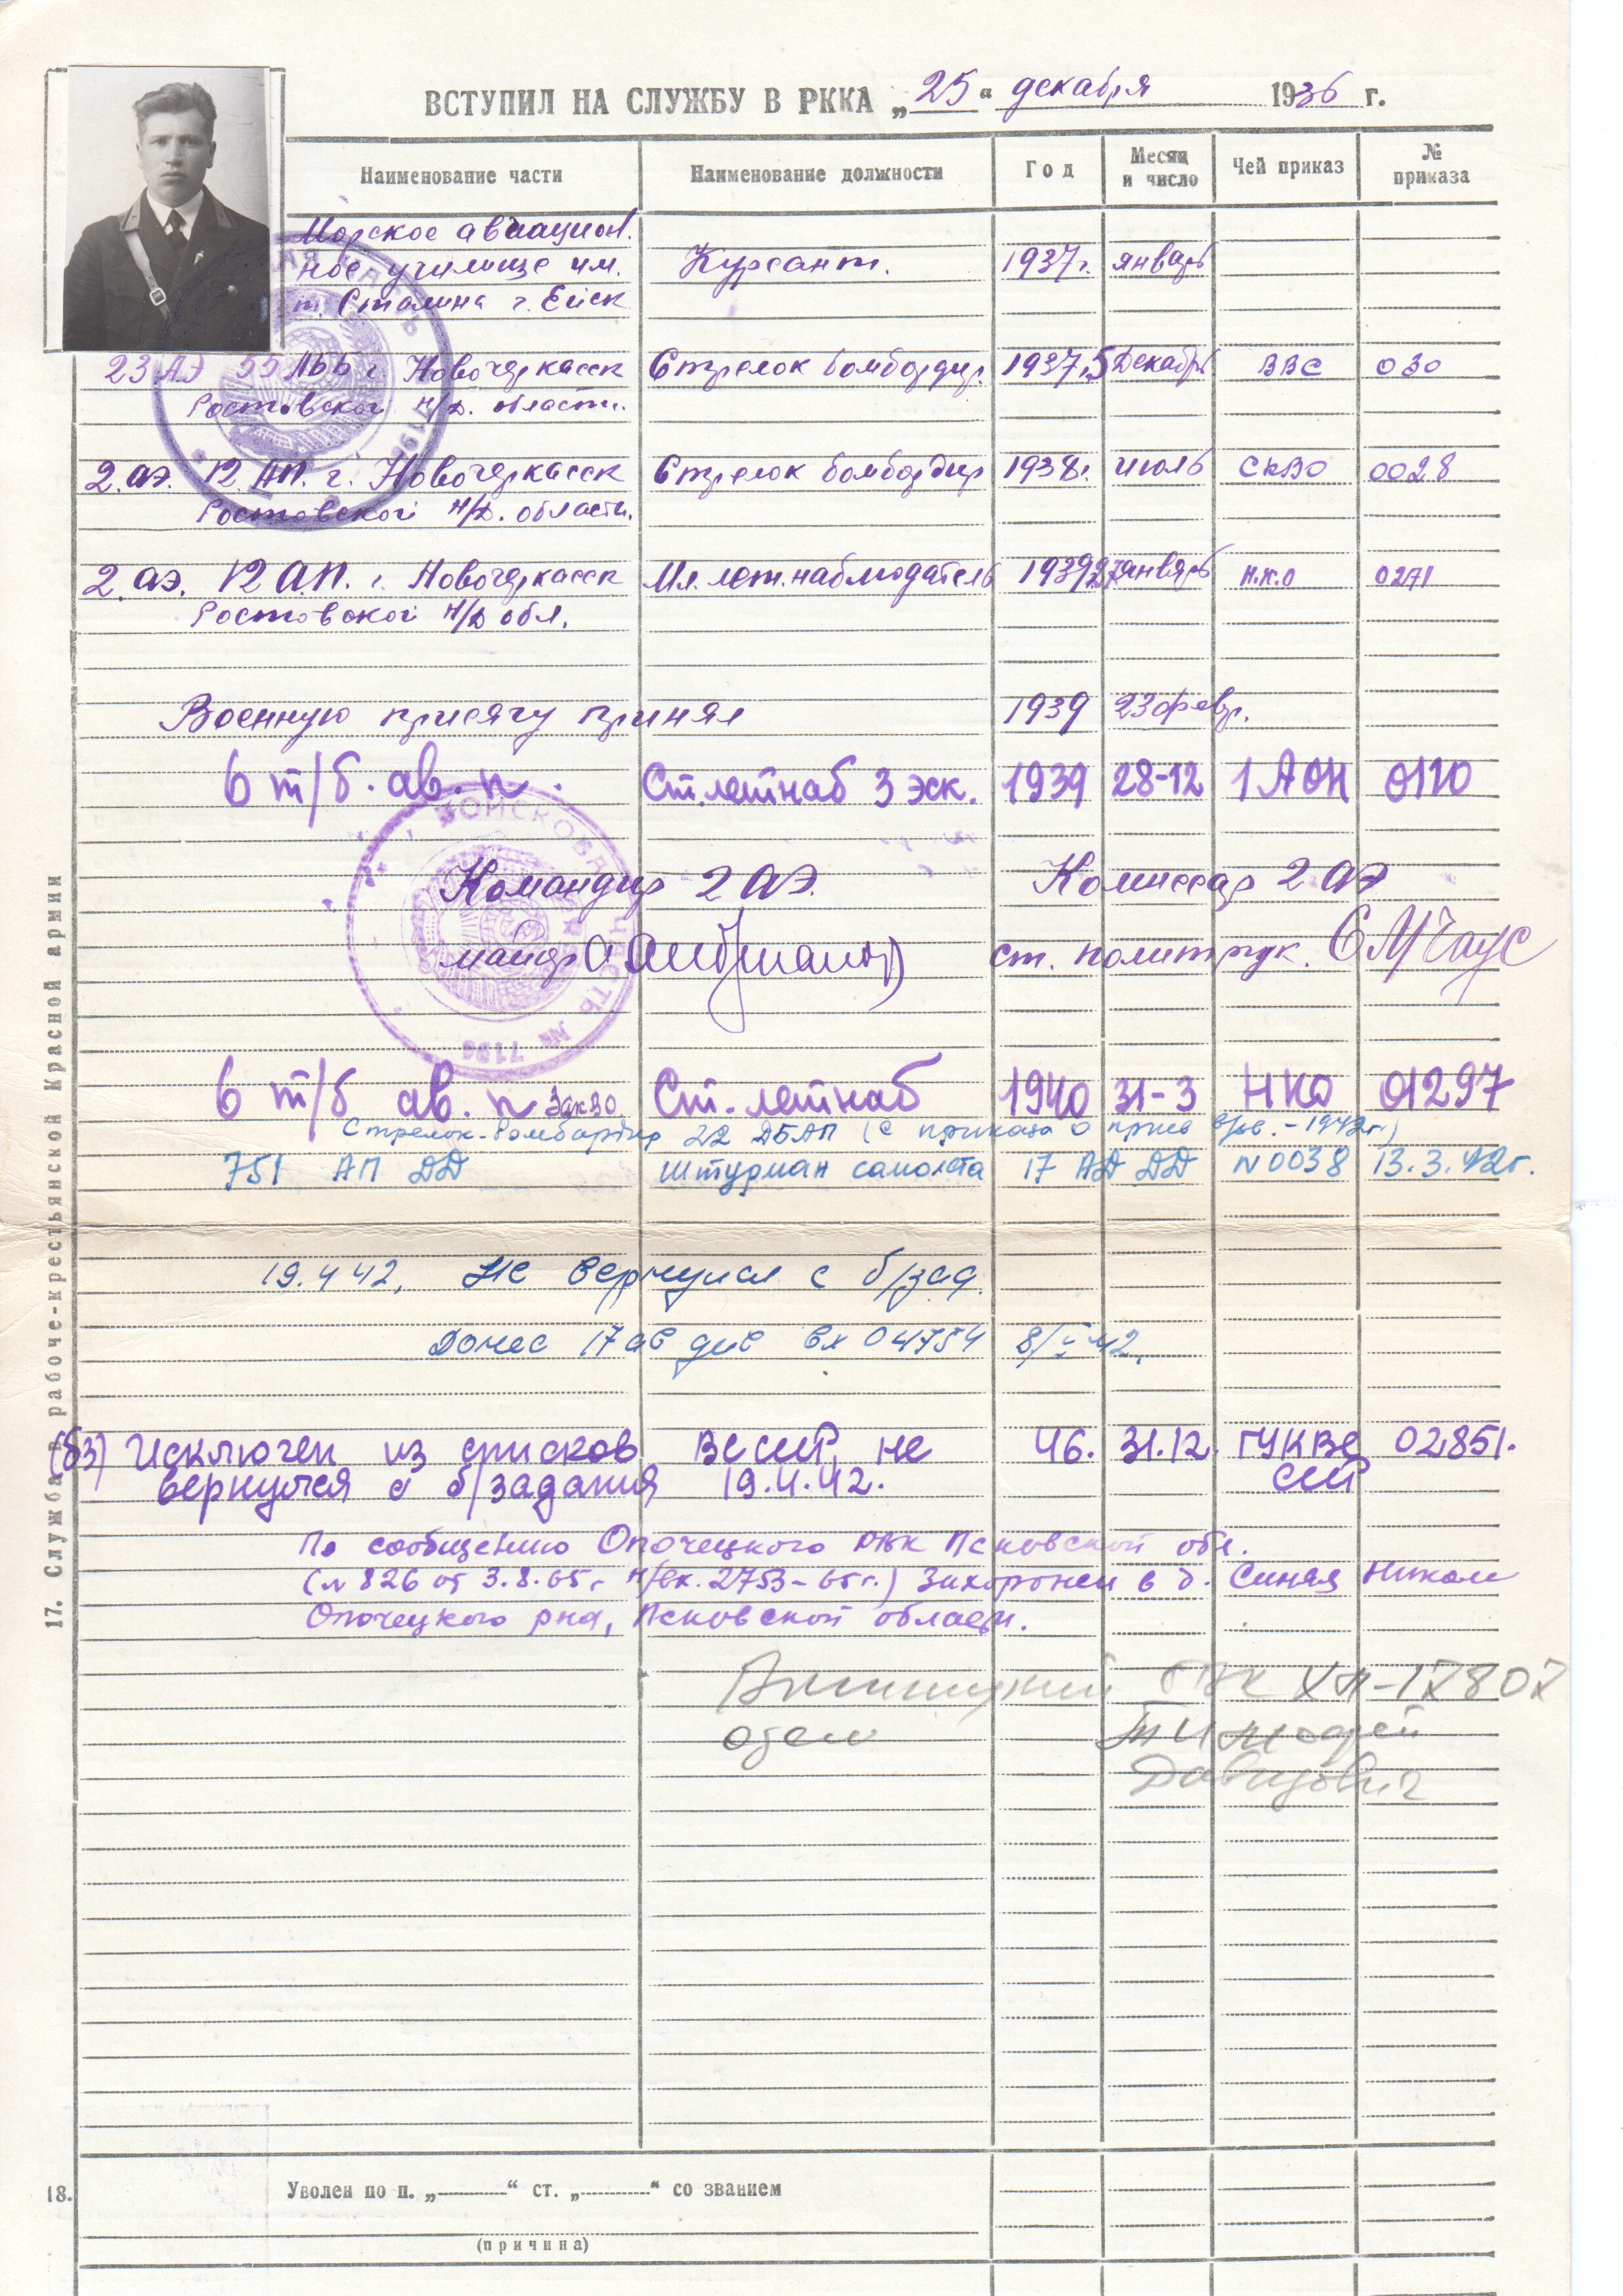 ВСТУПИЛ НА СЛУЖБУ В РККА „25“ декабря 1936 г.
Наименование части Наименование должности Год Месяц и число Чей приказ № приказа
Морское авиацион.
ное училище им. Курсант. 1937г. январь
т. Сталина г. Ейск
23 АЭ 55 ЛББ г. Новочеркасск Стрелок бомбардир. 1937г. 5 Декабрь ВВС 030
Ростовской н/Д. области.
2. аэ. 12 АП. г. Новочеркасск Стрелок бомбардир 1938г. июль СКВО 0028
Ростовской н/Д. области.
2. аэ. 12 А.П. г. Новочеркасск Мл. лет. наблюдатель 1939 27 январь Н.К.О 0271
Ростовской н/Д обл.
Военную присягу принял 1939 23 февр.
6 т/б. ав. п. Ст. летнаб 3 эск. 1939 28-12 1 АОН 0110
Командир 2 АЭ. Комиссар 2 АЭ
майор ст. политрук.
ВОЙСКОВАЯ ЧАСТЬ №
6 т/б ав. п ЗакВО Ст. летнаб 1940 31-3 НКО 01297
Стрелок-бомбардир 22 ДБАП (с приказа о -1942г.)
751 АП ДД штурман самолета 17 АД ДД N 0038 13.3.42г.
19.4 42, Не вернулся с б/зад.
Донес 17 ад вх 04754 8/V 42.
(бз) Исключен из списков ВС СССР, не 46. 31.12. ГУК ВС 02851.
вернулся с б/задания 19.4.42. СССР
По сообщению Опочецкого РВК Псковской обл.
(№ 826 от 3.8.65г н/вх. 2753-65г.) Захоронен в д. Синяя Никола
Опочецкого рна, Псковской области.
Винницкий ГВК ХП-17807
обл Тимофей
Давидович
17. Служба в рабоче-крестьянской Красной армии
18. Уволен по п. „“ ст. „“ со званием
(причина)